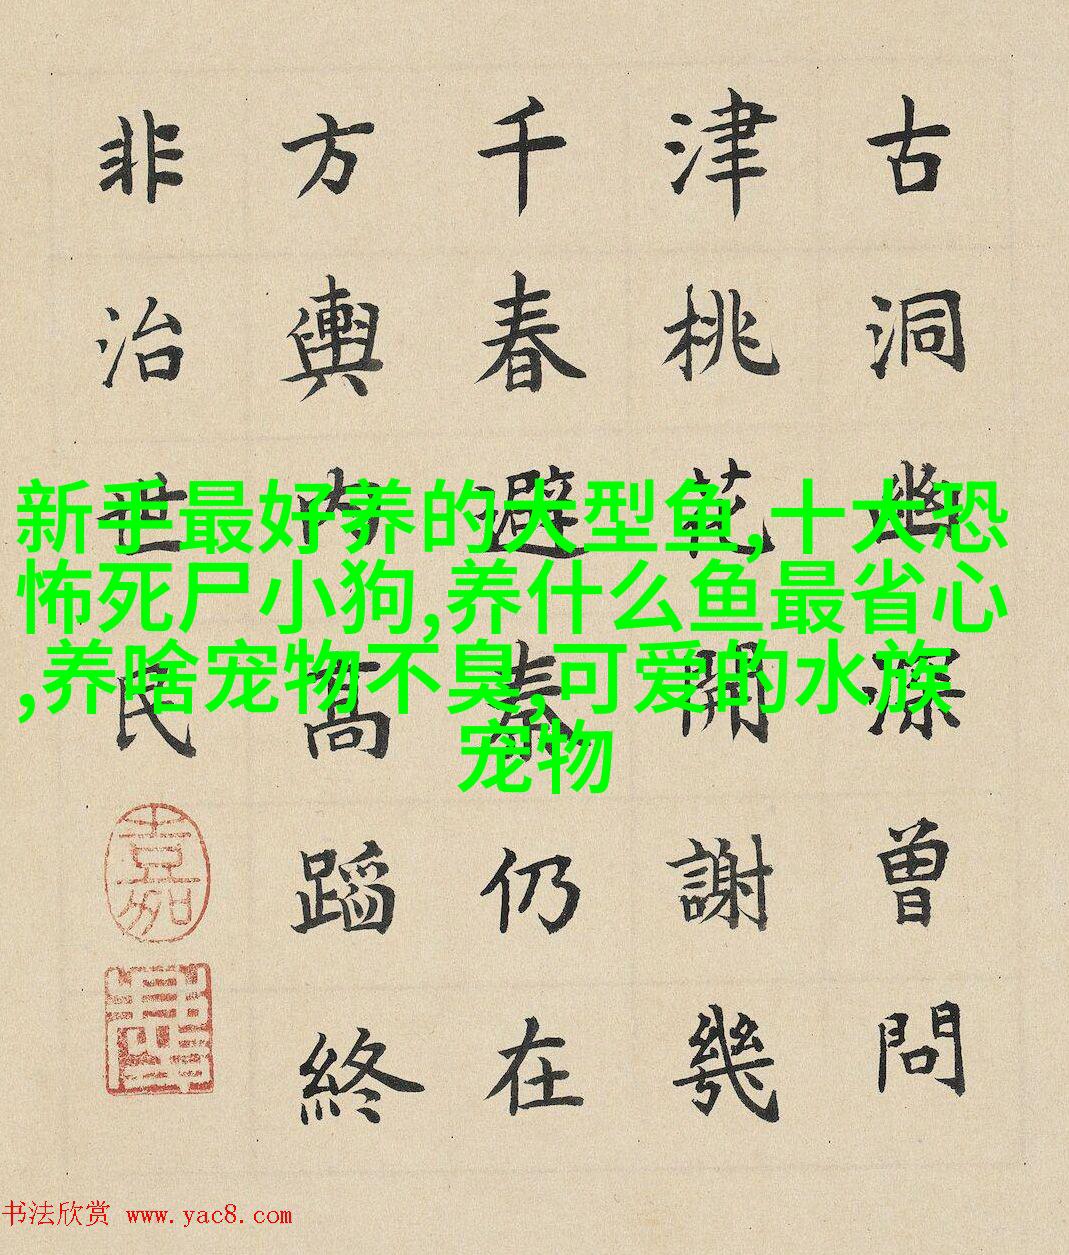 古洞幽深曾問
津桃花開謝幾
千春避秦仍在
方輿內高蹈終
非治世民
新手最好养的大型鱼,十大恐
怖死尸小狗,养什么鱼最省心
,养啥宠物不臭,可爱的水族
宠物
书法欣赏 www.yac8.com